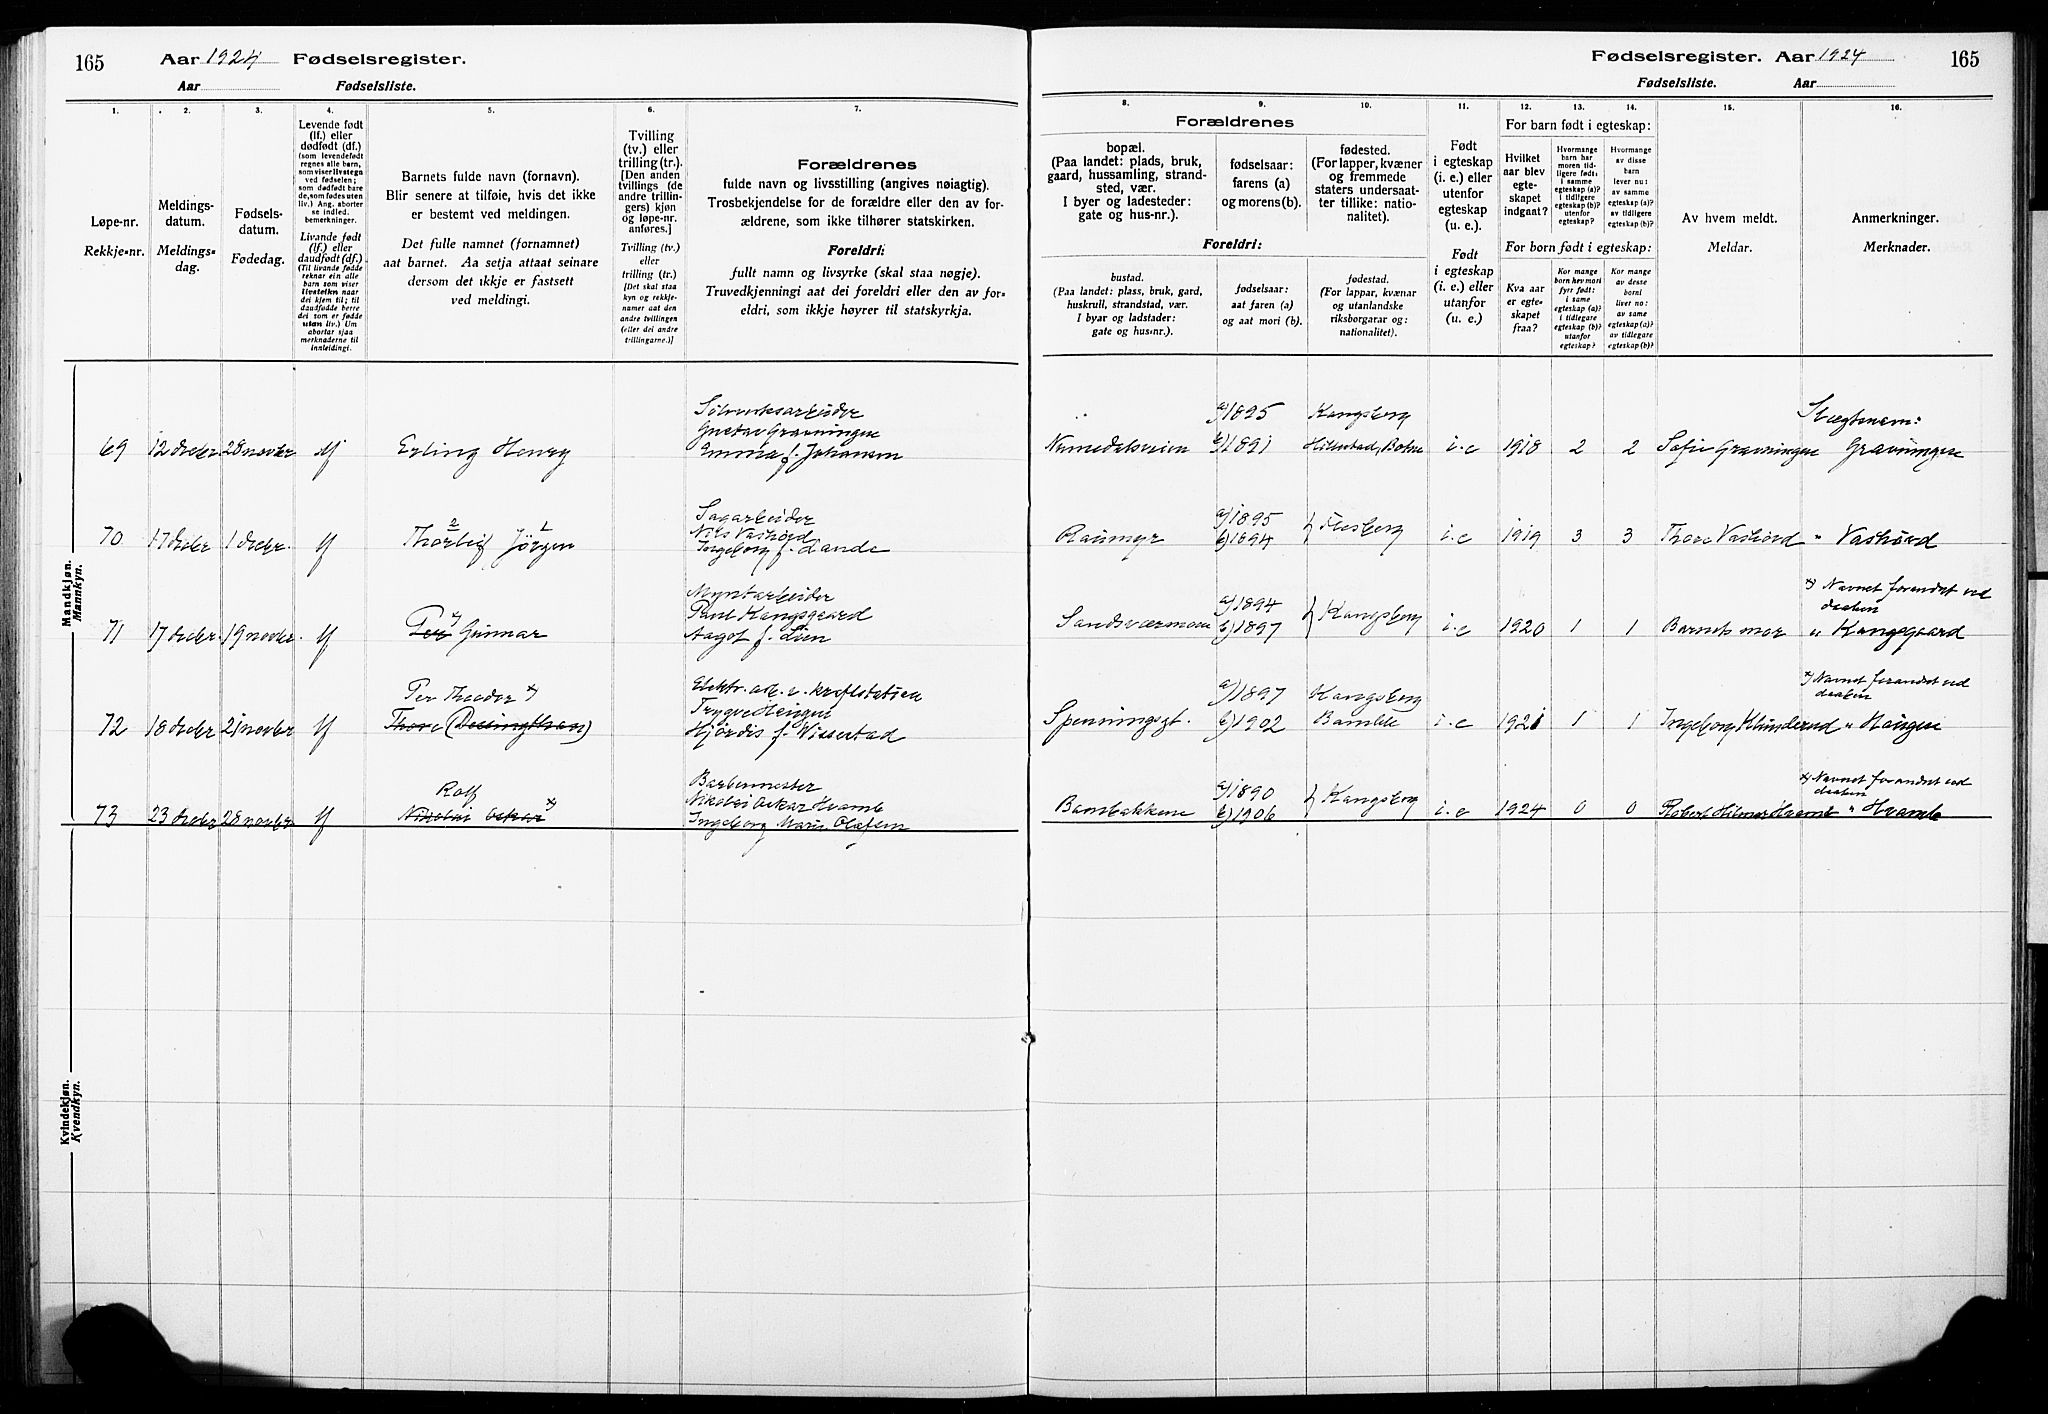 165 Aar 1924 Fødselsregister.
Aar Fødselsliste.
Fødselsregister. Aar 1924 165
Fødselsliste. Aar
1. 2. 3. 4. 5. 6. 7.
Løpe-nr.
Rekkje-nr.
Meldings-
datum.
Meldings-
dag.
Fødsels-
datum.
Fødedag.
Levende født
(lf.) eller
dødfødt (df.)
(som levendefødt
regnes alle barn,
som viser livstegn
ved fødselen;
som dødfødt bare
de, som fødes uten
liv.) Ang. aborter
se indled.
bemerkninger.
Livande født
(lf.) eller
daudfødt (df.)
(Til livande fødde
reknar ein alle
barn som viser
livsteikn naar
dei kjem til; til
daudfødde berre
dei som er fødde
utan liv.) Um
abortar sjaa
merknaderne til
innleidingi.
Barnets fulde navn (fornavn).
Blir senere at tilføie, hvis det ikke
er bestemt ved meldingen.
Det fulle namnet (fornamnet)
aat barnet. Aa setja attaat seinare
dersom det ikkje er fastsett
ved meldingi.
Tvilling
(tv.) eller
trilling (tr.).
[Den anden
tvillings (de
andre trillin-
gers) kjøn
og løpe-nr.
anføres.]
Tvilling (tv.)
eller
trilling (tr.)
[Det skal staa
kyn og rekkje-
namer aat den
andre tvillingen
(eller dei andre
trillingarne.)]
Forældrenes
fulde navn og livsstilling (angives nøiagtig).
Trosbekjendelse for de forældre eller den av for-
ældrene, som ikke tilhører statskirken.
Foreldri:
fullt namn og livsyrke (skal staa nøgje).
Truvedkjenningi aat dei foreldri eller den av for-
eldri, som ikkje høyrer til statskyrkja.
8. 9. 10. 11. 12. 13. 14. 15. 16.
Forældrenes
bopæl.
(Paa landet: plads, bruk,
gaard, hussamling, strand-
sted, vær.
I byer og ladesteder:
gate og hus-nr.).
Foreldri:
bustad.
(Paa landet: plass, bruk, gard,
huskrull, strandstad, vær.
I byar og ladstader:
gate og hus-nr.).
fødselsaar:
farens (a)
og morens (b).
fødselsaar:
aat faren (a)
og aat mori (b).
fødested.
(For lapper, kvæner
og fremmede
staters undersaat-
ter tillike: natio-
nalitet).
fødestad.
(For lappar, kvænar
og utanlandske
riksborgarar og:
nationalitet).
Født
i egteskap
(i. e.) eller
utenfor
egteskap
(u. e.).
Født
i egteskap
(i. e.) eller
utanfor
(u. e.)
For barn født i egteskap:
Hvilket
aar blev
egte-
skapet
indgaat?
For born født i egteskap:
Kva aar
er egte-
skapet
fraa?
Hvormange
barn har
moren tid-
ligere født:
i samme
egteskap (a)?
i tidligere
egteskap (b)?
utenfor
egteskap?
Kor mange
born hev mori
fyrr født:
i same
egteskap (a)?
i tidlegare
egteskap (b)?
utanfor
egteskap?
Hvormange
av disse
barn
lever nu:
av samme
egteskap (a)?
av tidligere
egteskap (b)?
Kor mange
av desse
borni
liver no:
av same
egteskap (a)?
av tidlegare
egteskap (b)?
Av hvem meldt.
Meldar.
Anmerkninger.
Merknader.
Mandkjøn.
Mannkyn.
Kvindekjøn.
Kvendkyn.
Sølvverksarbeider a) 1895 Kongsberg Slegtnavn:
Gustav Gravningen
69 12 decbr 28 novbr lf Erling Henry Emma f. Johansen Numedalsveien b) 1891 Hillestad, Botne i.e 1918 2 2 Sofie Gravningen Gravningen
Sagarbeider a) 1895
70 17 decbr 1 decbr. lf Thorleif 2 Jörgen 1 Nils Vashovd Raumyr b) 1894 } Flesberg i.e 1919 3 3 Thore Vashovd " Vashovd
Ingeborg f. Lande
Myntarbeider a) 1894 x) Navnet forandret ved
Paul Kongsgaard daaben
71 17 decbr. 19 novbr. lf Per x) Gunnar Aagot f. Lien Sandsværmoen b) 1897 } Kongsberg i.e 1920 1 1 Barnets mor " Kongsgaard
Per Theodor x) Elektr. arb. v. kraftstation a) 1897 Kongsberg x) Navnet forandret ved
daaben
72 18 decbr 21 novbr lf Thore Trygve Haugen Spenningsgt. b) 1902 Bamble i.e 1921 1 1 Ingeborg Klunderud " Haugen
Hjördis f. Wissestad
Rolf Barbermester a) 1890 x) Navnet forandret ved
daaben
73 23 decbr 28 novbr lf Nikolai Oskar x) Nikolai Oskar Hvamb Bambakkene b) 1906 } Kongsberg i.e 1924 0 0 Robert Hilmar Hvamb " Hvamb
Ingeborg Marie Olafsen